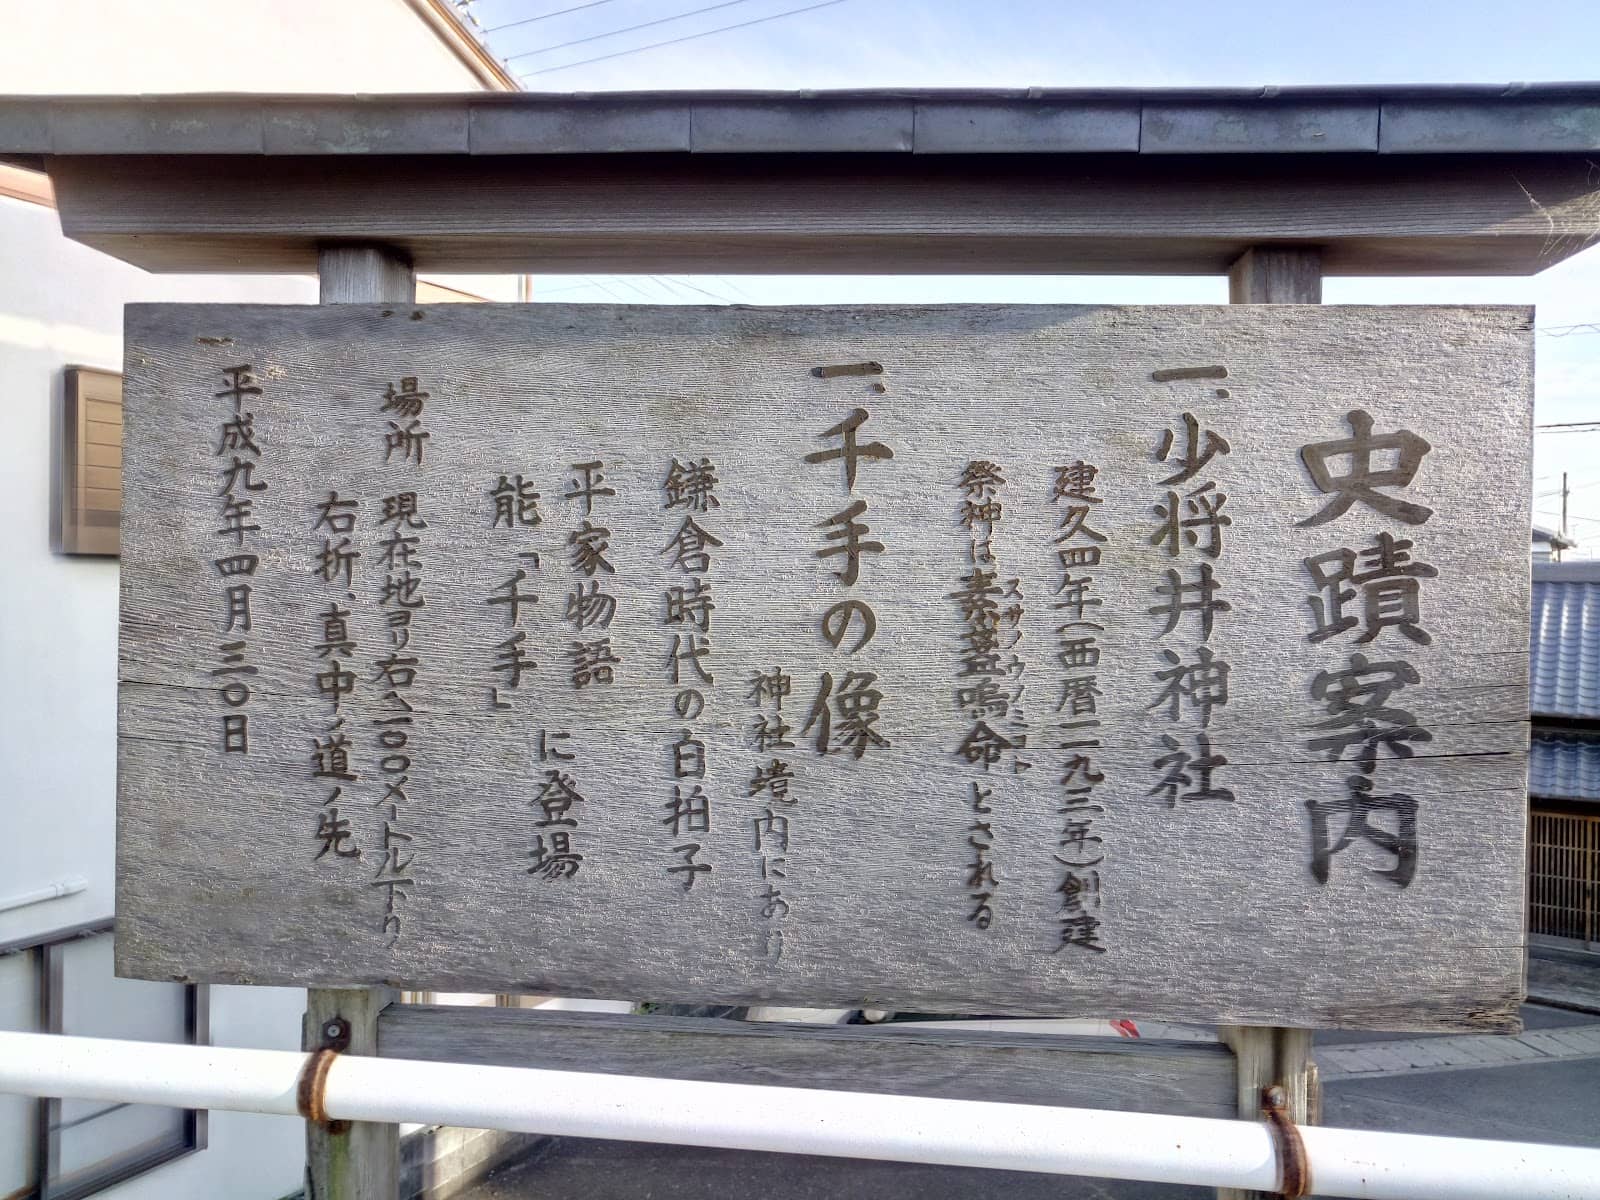 史蹟案内
一、少将井神社
建久四年(西暦一一九三年)創建
スサノウノミコト
祭神は素盞嗚命とされる
一、千手の像
神社境内にあり
鎌倉時代の白拍子
平家物語
能「千手」
に登場
場所 現在地ヨリ右ヘ一〇〇メートル下り、
右折、真中ノ道ノ先
平成九年四月三〇日